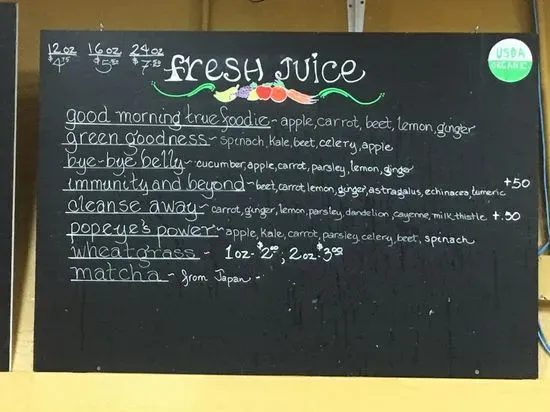 12 oz 16 oz 24 oz
$4.75 $5.50
fresh Juice
USDA
ORGANIC
good morning true foodie ~ apple, carrot, beet, lemon, ginger
green goodness ~ spinach, kale, beet, celery, apple
bye-bye belly ~ cucumber, apple, carrot, parsley, lemon, ginger
immunity and beyond ~ beet, carrot, lemon, ginger, astragalus, echinacea, tumeric +50
cleanse away ~ carrot, ginger, lemon, parsley, dandelion, cayenne, milk thistle +.50
popeye's power ~ apple, kale, carrot, parsley, celery, beet, spinach
wheatgrass ~ 1oz. $2.00, 2oz. $3.00
matcha ~ from Japan -